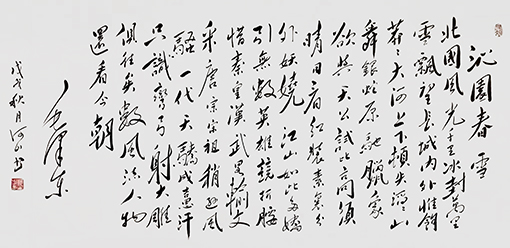 沁園春雪
北國風光千里冰封萬里
雪飄望長城內外惟餘
莽〻大河上下頓失滔〻山
舞銀蛇原馳蠟象
欲與天公試比高須
晴日看紅裝素裹分
外妖嬈江山如此多嬌
引無數英雄競折腰
惜秦皇漢武略輸文
采唐宗宋祖稍遜風
騷一代天驕成吉思汗
只識彎弓射大雕
俱往矣數風流人物
還看今朝
毛澤東
戊戌秋月河山書